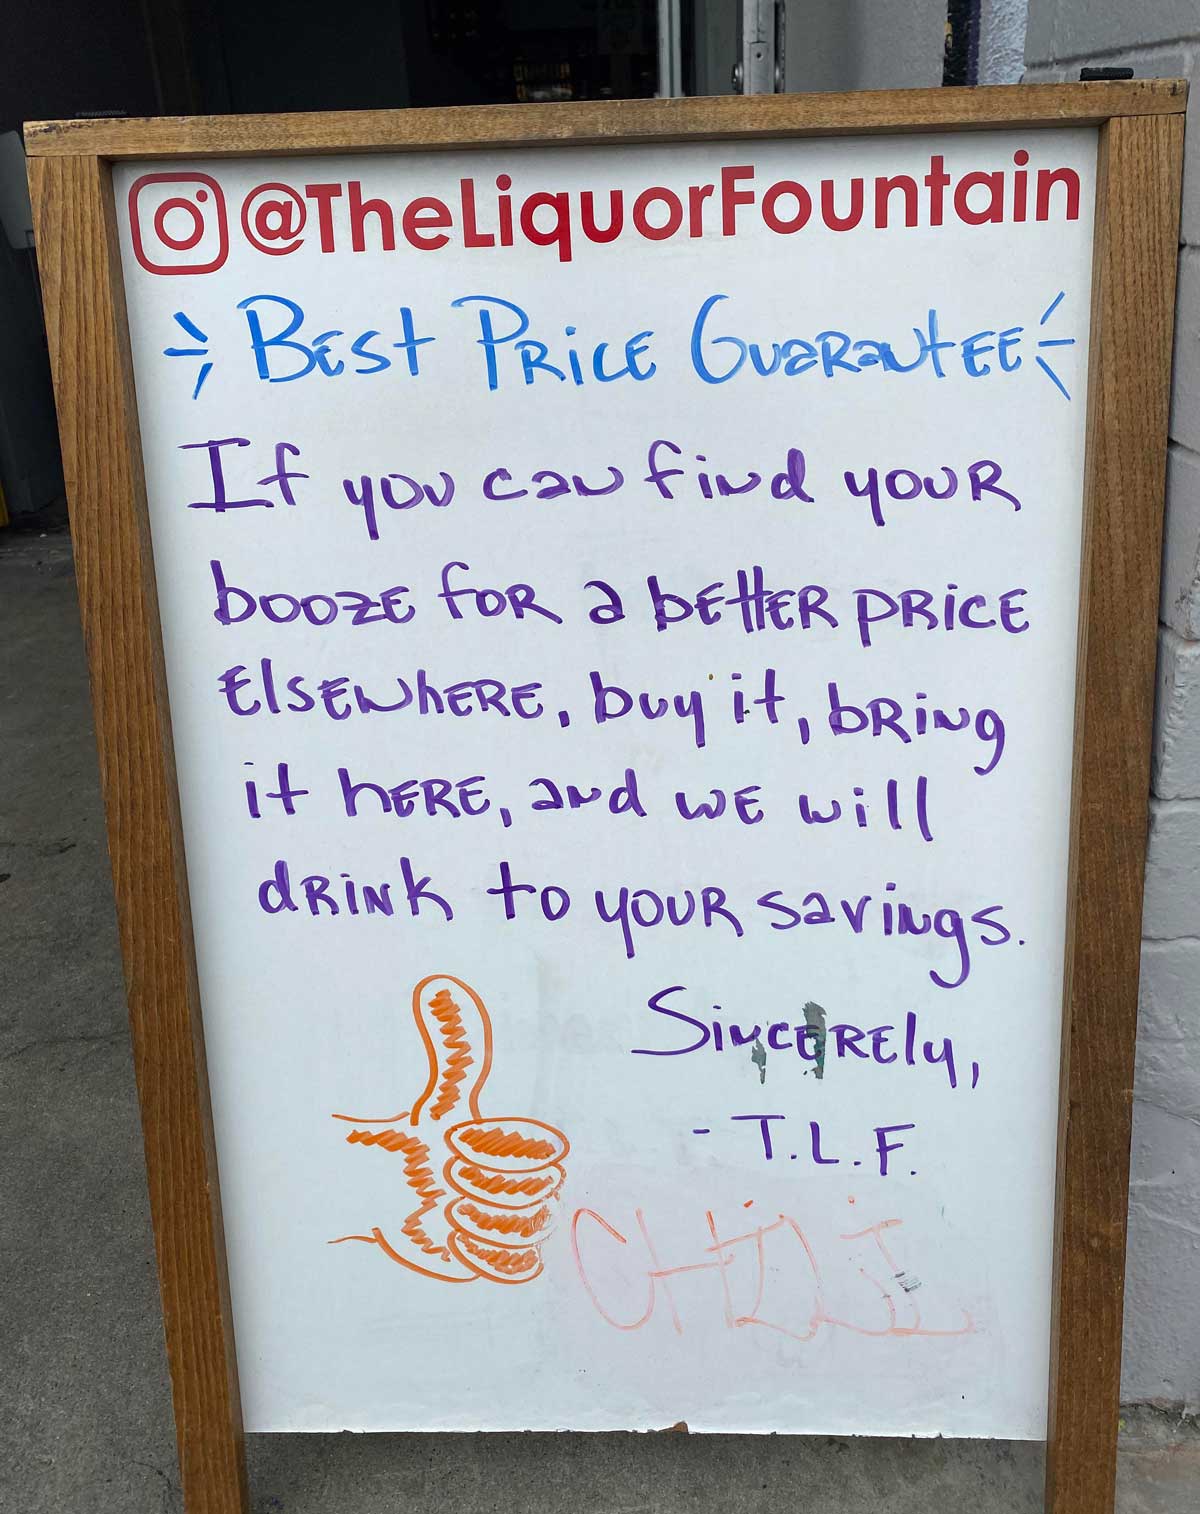 @TheLiquorFountain
Best Price Guarantee
If you can find your
booze for a better price
elsewhere, buy it, bring
it here, and we will
drink to your savings.
Sincerely,
- T.L.F.